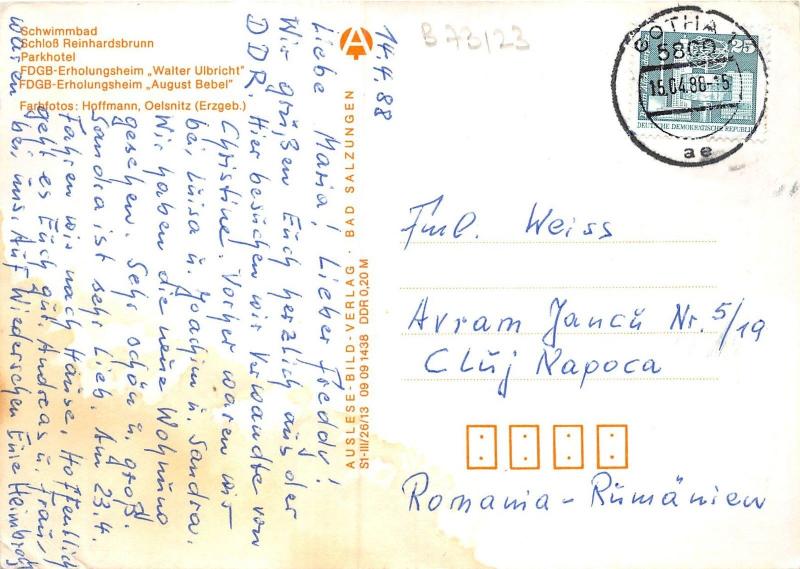 Schwimmbad
Schloß Reinhardsbrunn
Parkhotel
FDGB-Erholungsheim „Walter Ulbricht"
FDGB-Erholungsheim „August Bebel"
Farbfotos: Hoffmann, Oelsnitz (Erzgeb.)
14.4.88
Liebe Maria! Lieber Freddy!
Wir grüßen Euch herzlich aus der
DDR. Hier besuchen wir Verwandte von
Christine. Vorher waren wir
bei Luisa u. Joachim u. Sandra.
Wir haben die neue Wohnung
gesehen. Sehr schön u. groß.
Sandra ist sehr lieb. Am 23.4.
fahren wir nach Hause. Hoffentlich
geht es Euch gut. Andreas u. Frau
waren bei uns. Auf Wiedersehen Eure
AUSLESE-BILD-VERLAG · BAD SALZUNGEN
S1-III/26/13 09 09 1438 DDR 0,20 M
B 73/23
GOTHA 1
5800
15.04.88-15
ae
25
DEUTSCHE DEMOKRATISCHE REPUBLIK
Fml. Weiss
Avram Jancu Nr. 5/19
Cluj Napoca
Romania - Rümänien